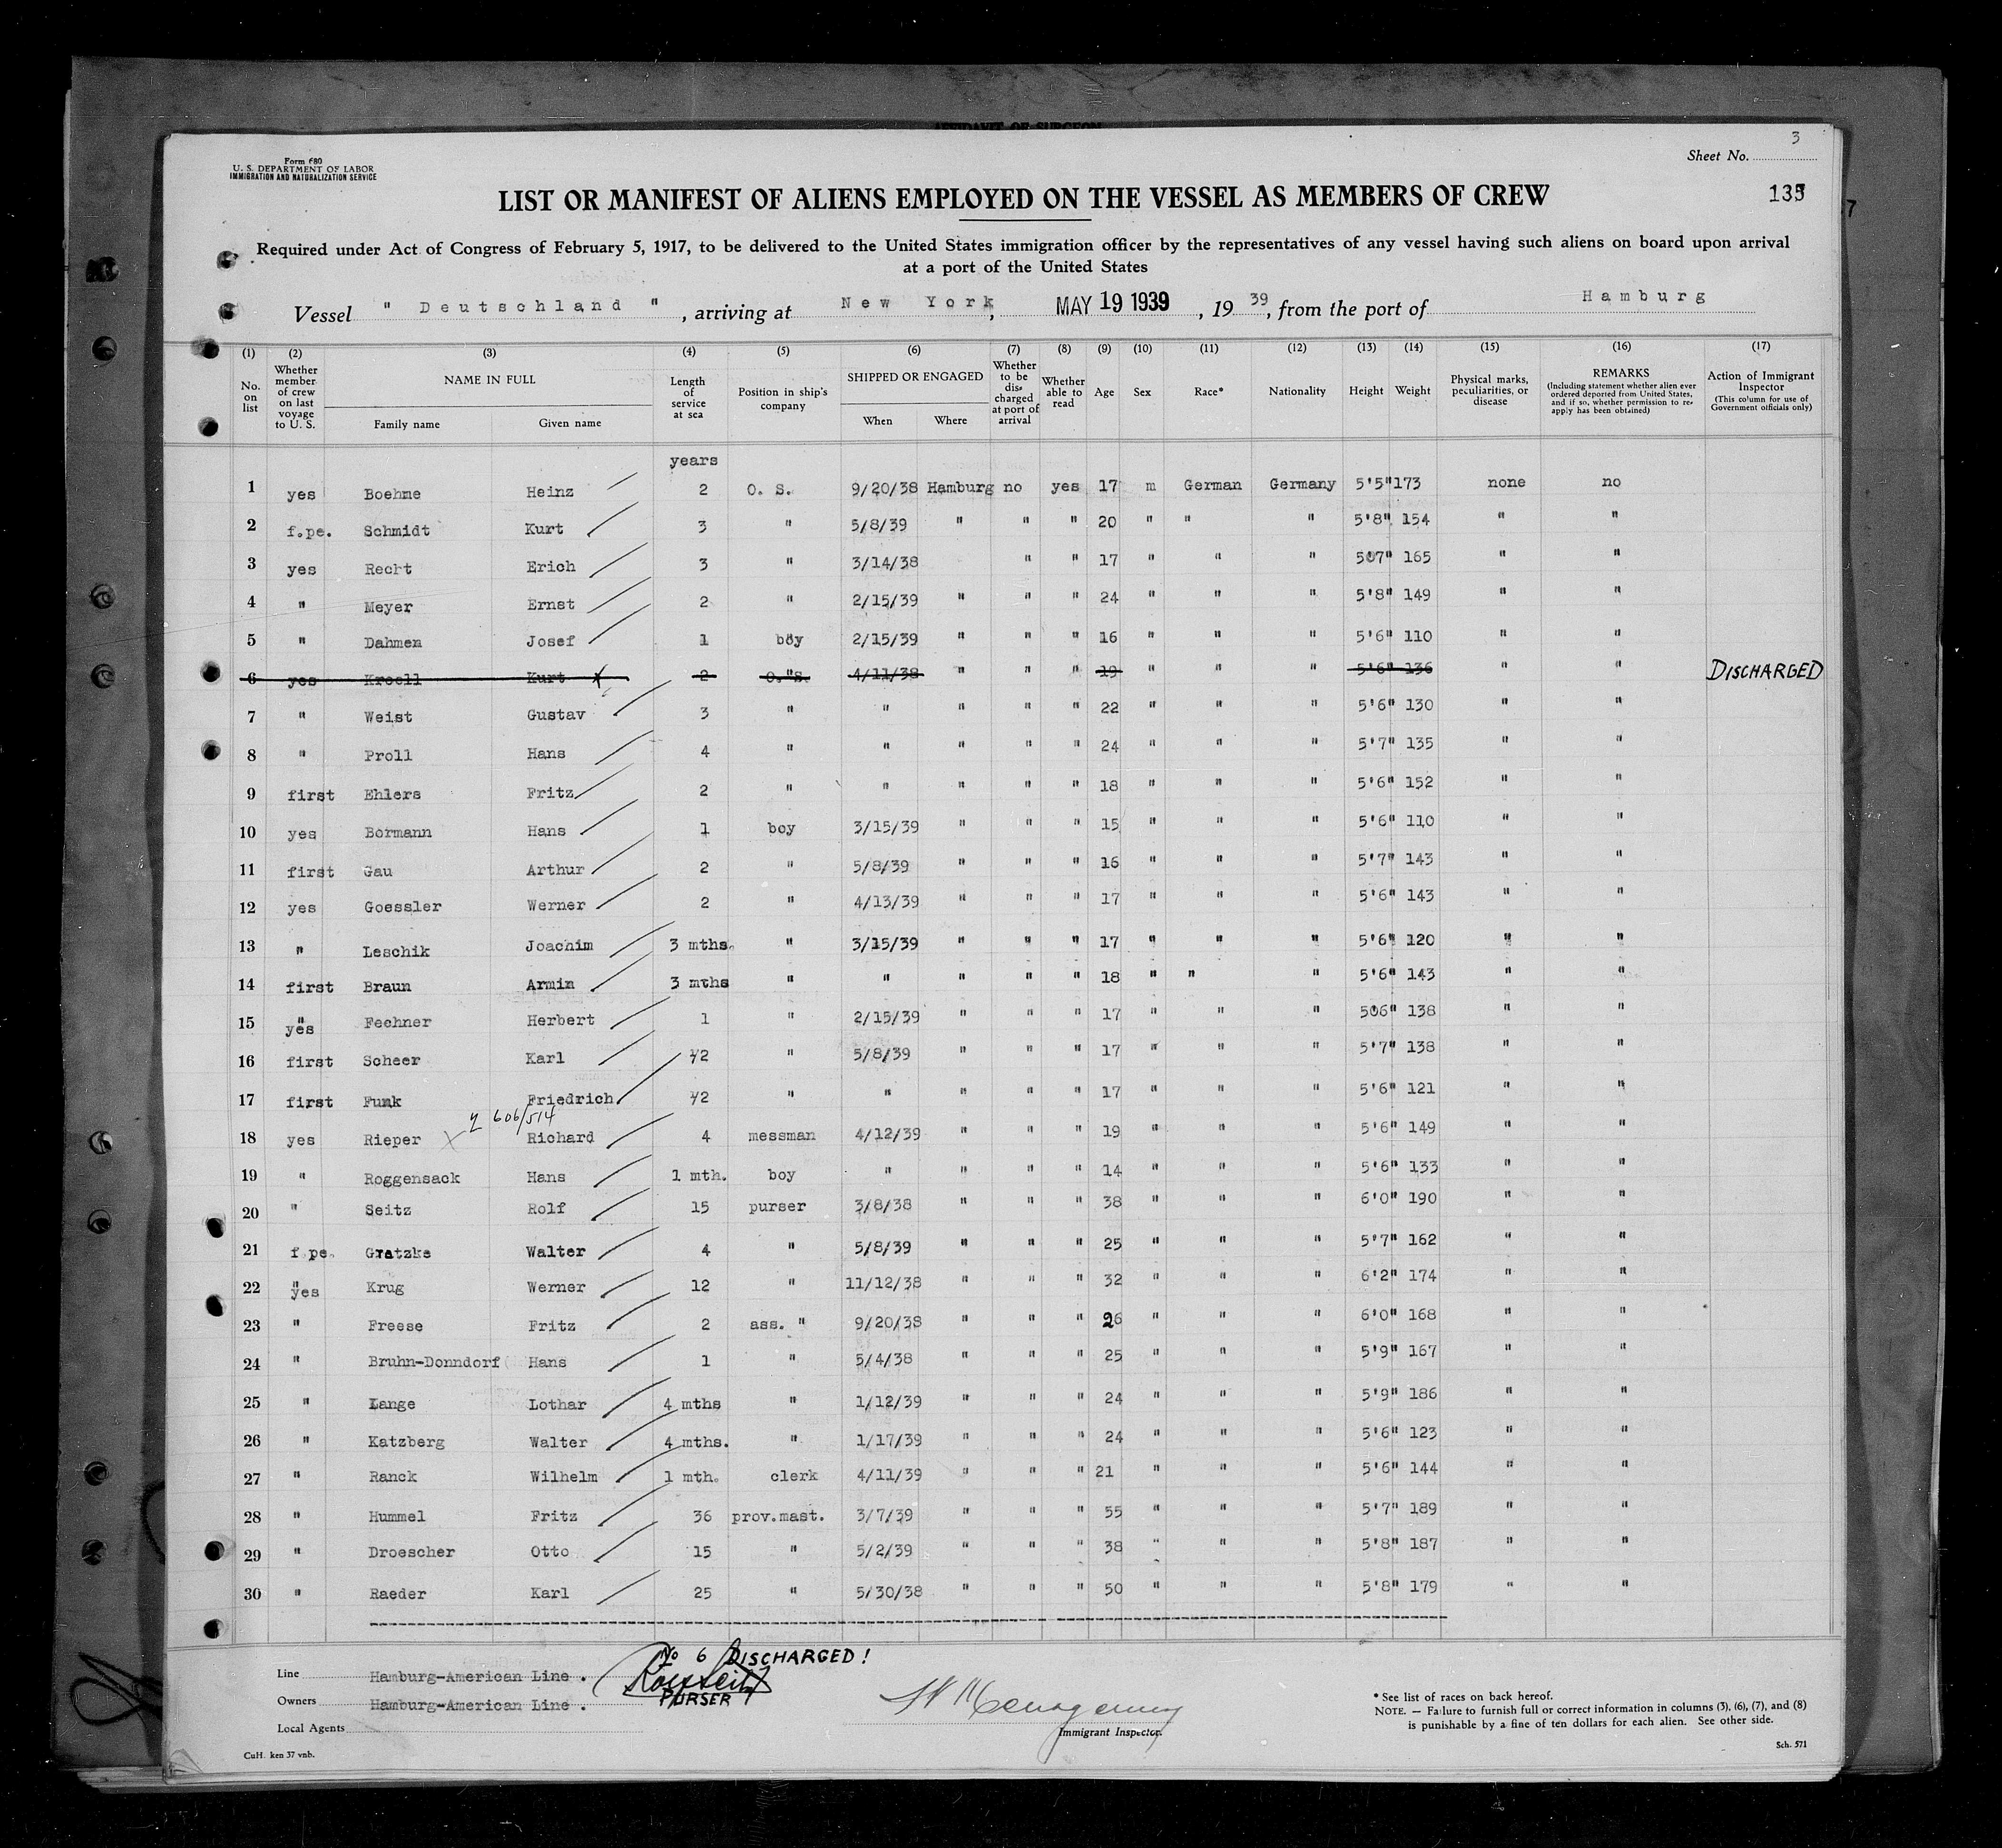 AFFIDAVIT OF SURGEON
3
Form 680
U. S. DEPARTMENT OF LABOR
IMMIGRATION AND NATURALIZATION SERVICE
Sheet No.
LIST OR MANIFEST OF ALIENS EMPLOYED ON THE VESSEL AS MEMBERS OF CREW
Required under Act of Congress of February 5, 1917, to be delivered to the United States immigration officer by the representatives of any vessel having such aliens on board upon arrival
at a port of the United States
Vessel " Deutschland ", arriving at New York, MAY 19 1939, 19 39, from the port of Hamburg
(1) (2) (3) (4) (5) (6) (7) (8) (9) (10) (11) (12) (13) (14) (15) (16) (17)
No. on list
Whether member of crew on last voyage to U. S.
NAME IN FULL
Family name Given name
Length of service at sea
Position in ship's company
SHIPPED OR ENGAGED
When Where
Whether to be discharged at port of arrival
Whether able to read
Age Sex Race* Nationality Height Weight
Physical marks, peculiarities, or disease
REMARKS
(Including statement whether alien ever ordered deported from United States, and if so, whether permission to reapply has been obtained)
Action of Immigrant Inspector
(This column for use of Government officials only)
years
1 yes Boehme Heinz 2 O. S. 9/20/38 Hamburg no yes 17 m German Germany 5'5" 173 none no
2 f.pe. Schmidt Kurt 3 " 5/8/39 " " " 20 " " " 5'8" 154 " "
3 yes Recht Erich 3 " 3/14/38 " " 17 " " " 507" 165 " "
4 " Meyer Ernst 2 " 2/15/39 " " " 24 " " " 5'8" 149 " "
5 " Dahmen Josef 1 boy 2/15/39 " " " 16 " " " 5'6" 110 " "
6 yes Kroell Kurt 2 O."S. 4/11/38 " " " 19 " " " 5'6" 136 " " DISCHARGED
7 " Weist Gustav 3 " " " " " 22 " " " 5'6" 130 " "
8 " Proll Hans 4 " " " " " 24 " " " 5'7" 135 " "
9 first Ehlers Fritz 2 " " " " " 18 " " " 5'6" 152 " "
10 yes Bormann Hans 1 boy 3/15/39 " " " 15 " " " 5'6" 110 " "
11 first Gau Arthur 2 " 5/8/39 " " " 16 " " " 5'7" 143 " "
12 yes Goessler Werner 2 " 4/13/39 " " " 17 " " " 5'6" 143 " "
13 " Leschik Joachim 3 mths. " 3/15/39 " " " 17 " " " 5'6" 120 " "
14 first Braun Armin 3 mths " " " " " 18 " " " 5'6" 143 " "
15 " yes Fechner Herbert 1 " 2/15/39 " " " 17 " " " 506" 138 " "
16 first Scheer Karl 1/2 " 5/8/39 " " " 17 " " " 5'7" 138 " "
17 first Funk Friedrich 1/2 " " " " " 17 " " " 5'6" 121 " "
606/514
18 yes Rieper X Richard 4 messman 4/12/39 " " " 19 " " " 5'6" 149 " "
19 " Roggensack Hans 1 mth. boy " " " " 14 " " " 5'6" 133 " "
20 " Seitz Rolf 15 purser 3/8/38 " " " 38 " " " 6'0" 190 " "
21 f.pe. Gratzke Walter 4 " 5/8/39 " " " 25 " " " 5'7" 162 " "
22 " yes Krug Werner 12 " 11/12/38 " " " 32 " " " 6'2" 174 " "
23 " Freese Fritz 2 ass. " 9/20/38 " " " 26 " " " 6'0" 168 " "
24 " Bruhn-Donndorf Hans 1 " 5/4/38 " " " 25 " " " 5'9" 167 " "
25 " Lange Lothar 4 mths " 1/12/39 " " " 24 " " " 5'9" 186 " "
26 " Katzberg Walter 4 mths. " 1/17/39 " " " 24 " " " 5'6" 123 " "
27 " Ranck Wilhelm 1 mth. clerk 4/11/39 " " " 21 " " " 5'6" 144 " "
28 " Hummel Fritz 36 prov.mast. 3/7/39 " " " 55 " " " 5'7" 189 " "
29 " Droescher Otto 15 " 5/2/39 " " " 38 " " " 5'8" 187 " "
30 " Raeder Karl 25 " 5/30/38 " " " 50 " " " 5'8" 179 " "
No 6 DISCHARGED!
Line Hamburg-American Line .
Rolf Seitz
PURSER
Owners Hamburg-American Line .
Local Agents
Immigrant Inspector.
* See list of races on back hereof.
NOTE. — Failure to furnish full or correct information in columns (3), (6), (7), and (8)
is punishable by a fine of ten dollars for each alien. See other side.
CuH. ken 37 vnb.
Sch. 571